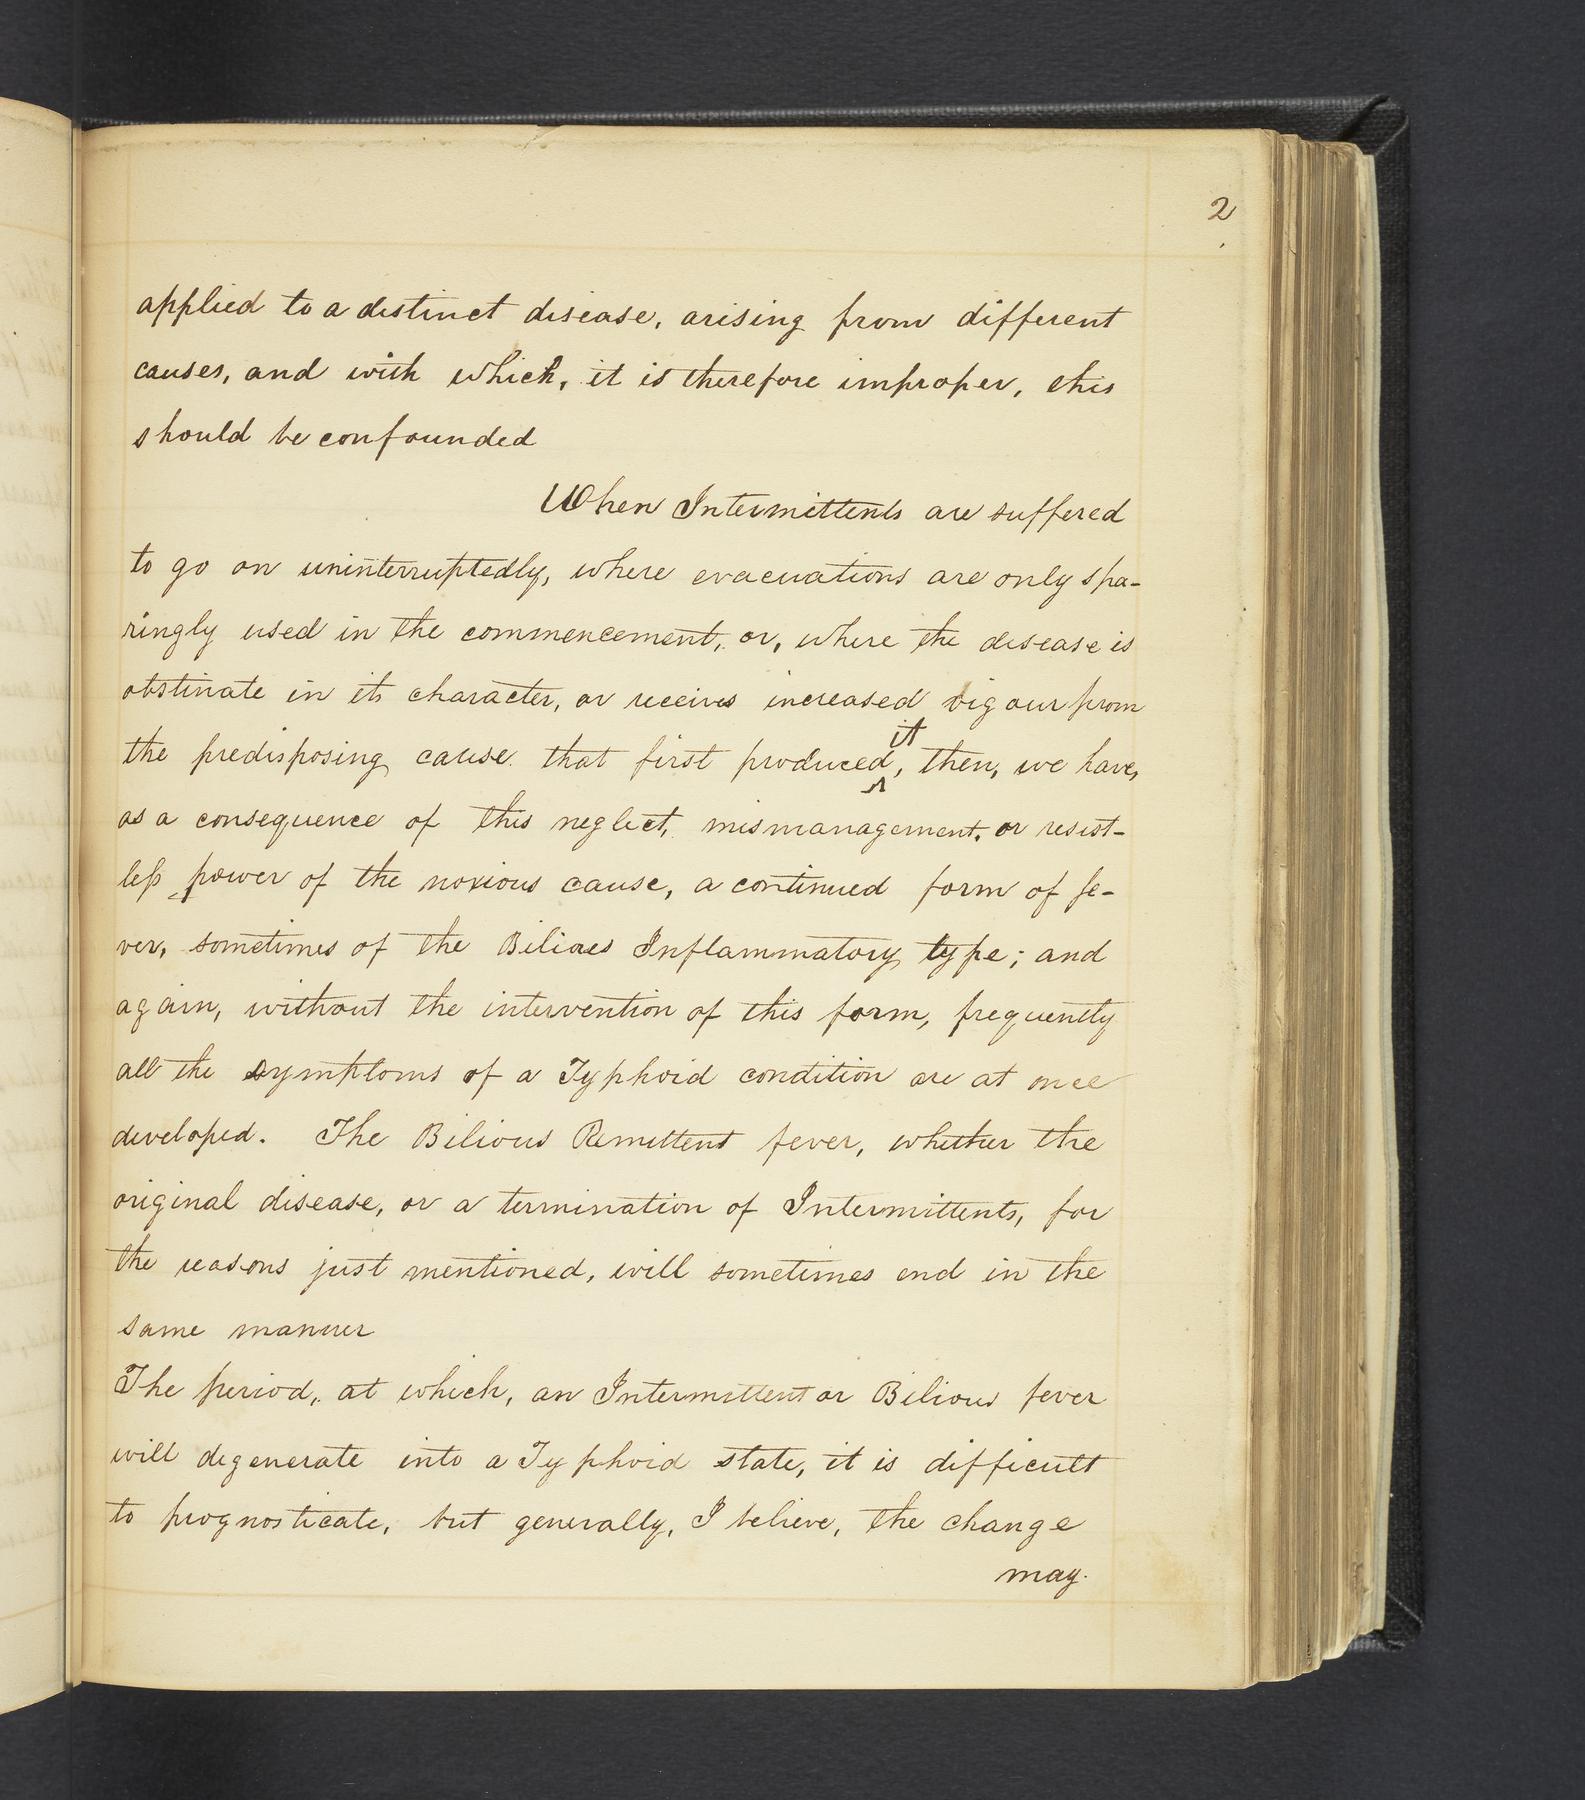 2
applied to a distinct disease, arising from different
causes, and with which, it is therefore improper, this
should be confounded
When Intermittents are suffered
to go on uninterruptedly, where evacuations are only spa-
ringly used in the commencement, or, where the disease is
obstinate in its character, or receives increased vigour from
the predisposing cause that first produced it, then, we have,
as a consequence of this neglect, mismanagement, or resist-
less power of the noxious cause, a continued form of fe-
ver, sometimes of the Bilious Inflammatory type; and
again, without the intervention of this form, frequently
all the symptoms of a Typhoid condition are at once
developed. The Bilious Remittent fever, whether the
original disease, or a termination of Intermittents, for
the reasons just mentioned, will sometimes end in the
same manner
The period, at which, an Intermittent or Bilious fever
will degenerate into a Typhoid state, it is difficult
to prognosticate, but generally, I believe, the change
may.